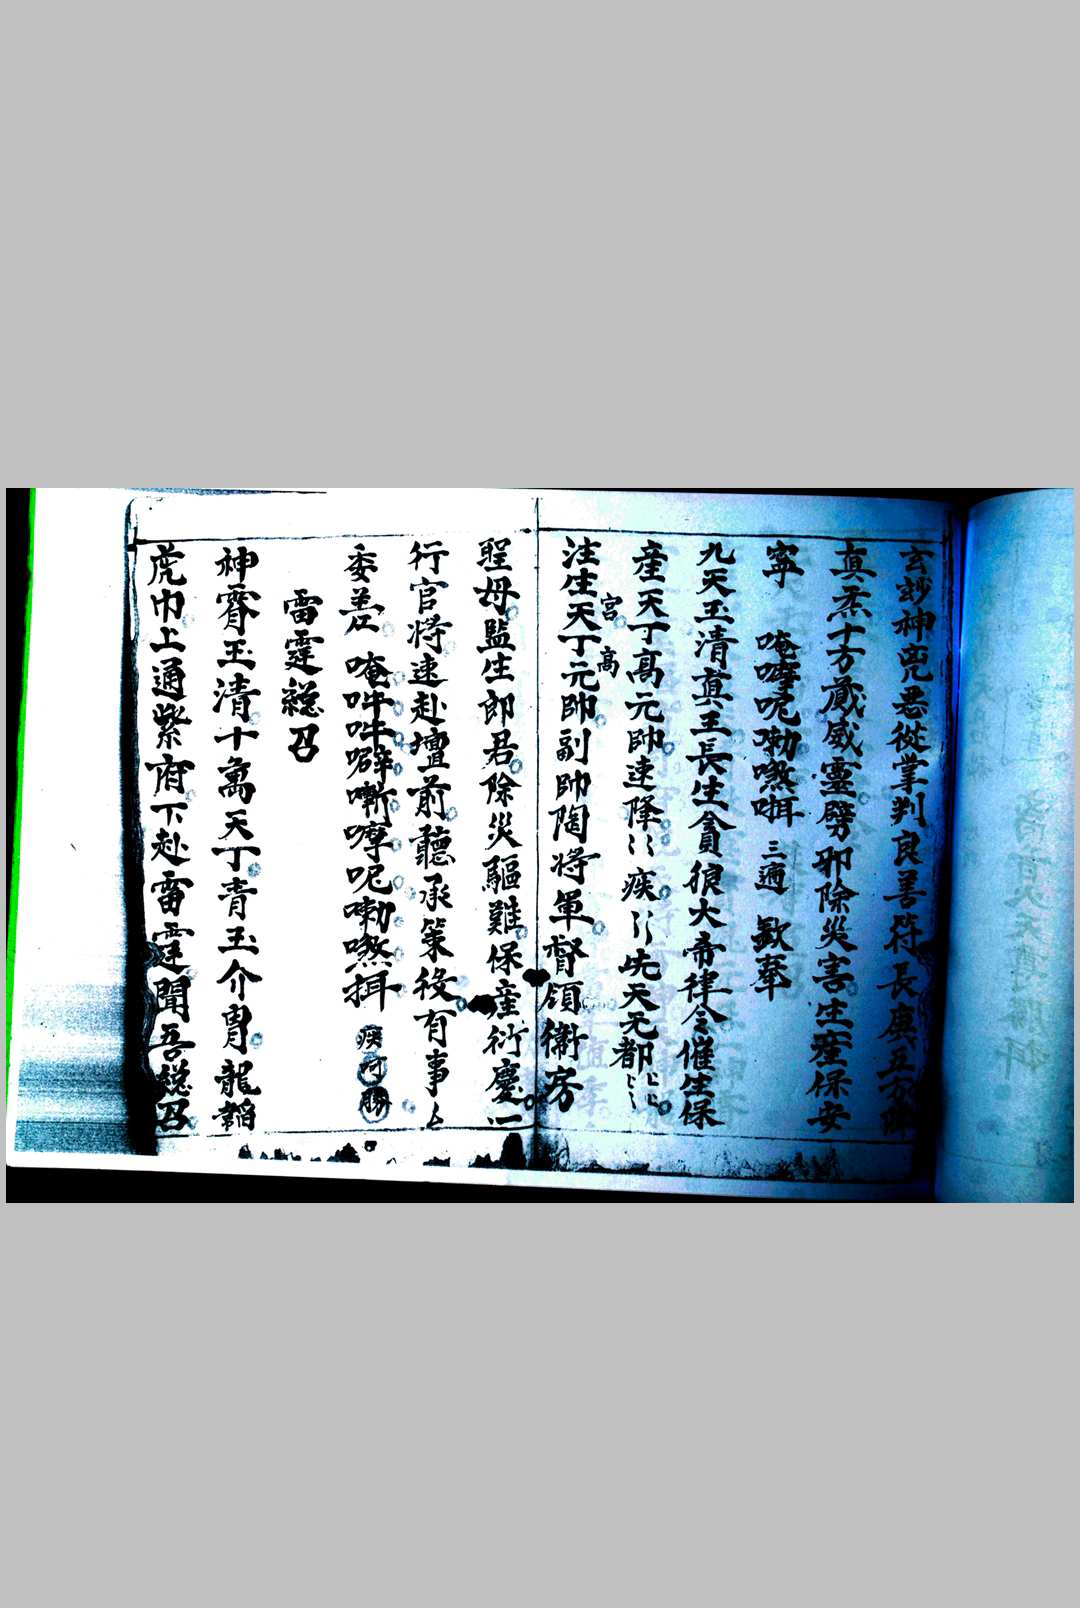 玄妙神兇悪從掌判良善符長庚五方
真炁十方蕆威靈劈邪除災害生産保安
寧　唵嚤呢嘞嘫㖇　三遍　歘奉
九天玉清真王長生貪狼大帝律令催生保
産天丁髙元帥速降〻疾〻先天元都〻〻
宮髙
注生天丁元帥副帥陶將軍督領衛房
聖母監生郎君除災驅難保産衍慶一
行官將速赴壇前聽承策役有事
委差　唵吽吽噼嘶嚤呢嘞嘫㖇
雷霆総召
神霄玉清十萬天丁青玉介胄龍韜
虎巾上通紫府下赴雷霆聞吾総召